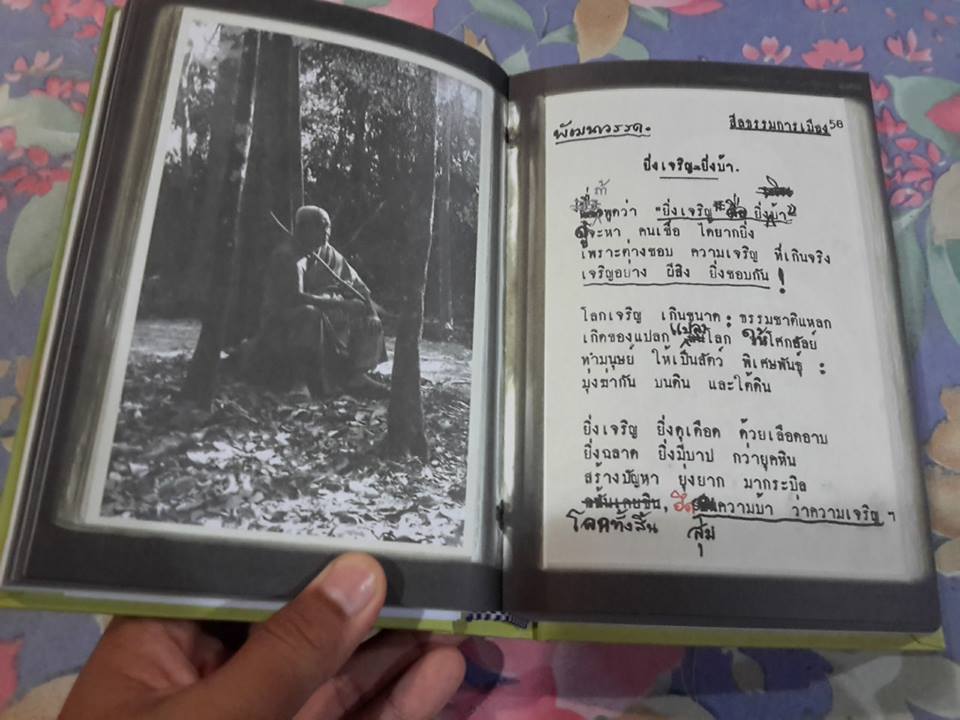 พัฒนวรรค.
ศีลธรรมการเมือง 56
ยิ่งเจริญ=ยิ่งบ้า.
ถ้าพูดว่า "ยิ่งเจริญ คือ ยิ่งบ้า"
ดูจะหา คนเชื่อ ได้ยากยิ่ง
เพราะต่างชอบ ความเจริญ ที่เกินจริง
เจริญอย่าง ผีสิง ยิ่งชอบกัน !
โลกเจริญ เกินขนาด : ธรรมชาติแหลก
เกิดของแปลก แปลง โลก ให้โศกสัลย์
ทำมนุษย์ ให้เป็นสัตว์ พิเศษพันธุ์ :
มุ่งฆ่ากัน บนดิน และใต้ดิน
ยิ่งเจริญ ยิ่งดุเดือด ด้วยเลือดอาบ
ยิ่งฉลาด ยิ่งมีบาป กว่ายุคหิน
สร้างปัญหา ยุ่งยาก มากระบิล
ความบ้า ว่าความเจริญ ฯ
ทั้งสิ้น